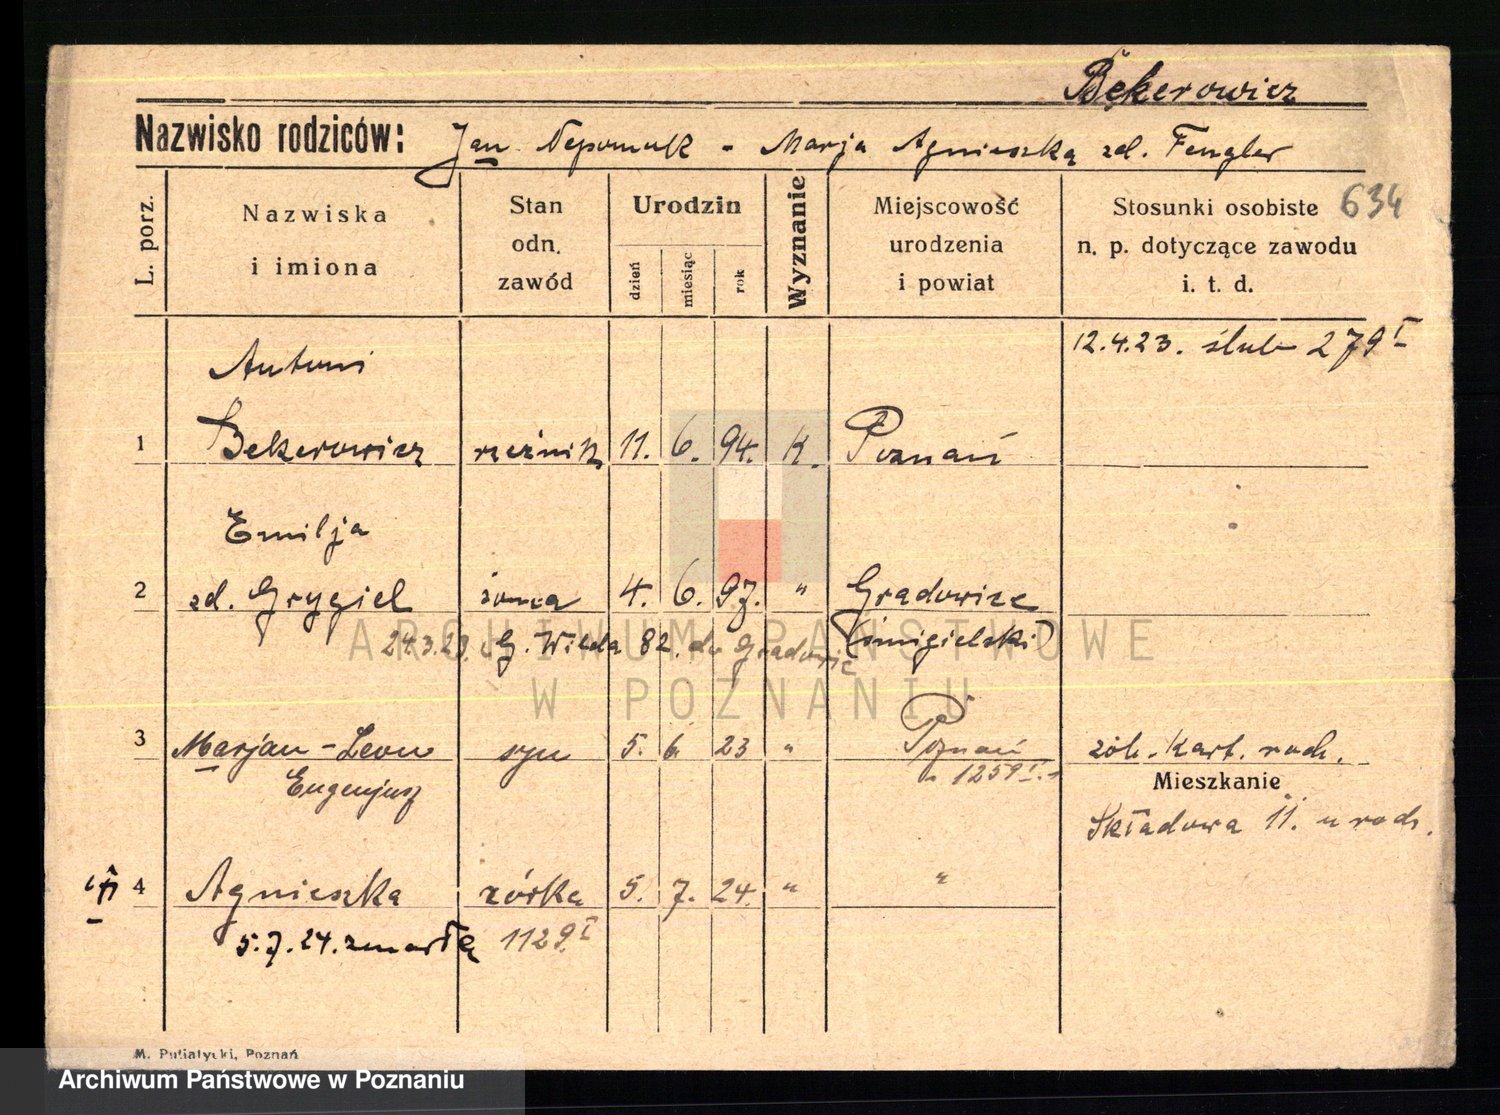 Bękerowicz
Nazwisko rodziców: Jan Nepomuk - Marja Agnieszka zd. Fengler
634
L. porz.
Nazwiska i imiona
Stan odn. zawód
Urodzin
dzień
miesiąc
rok
Wyznanie
Miejscowość urodzenia i powiat
Stosunki osobiste n. p. dotyczące zawodu i. t. d.
12.4.23. ślub 279 I
Antoni
1 Bekerowicz rzeźnik 11. 6. 94. K. Poznań
Emilja
2 zd. Grygiel żona 4. 6. 97. " Gradowice
24.3.23. G. Wilda 82. do Gradowic (śmigielski)
3 Marjan - Leon syn 5. 6. 23 " Poznań zob. Kart. rodz.
Eugenjusz 1259 I.
Mieszkanie
Składowa 11. u rodz.
4 Agnieszka córka 5. 7. 24. " "
5.7.24. zmarła 1129 I
M. Putiatycki, Poznań
ARCHIWUM PAŃSTWOWE
W POZNANIU
Archiwum Państwowe w Poznaniu